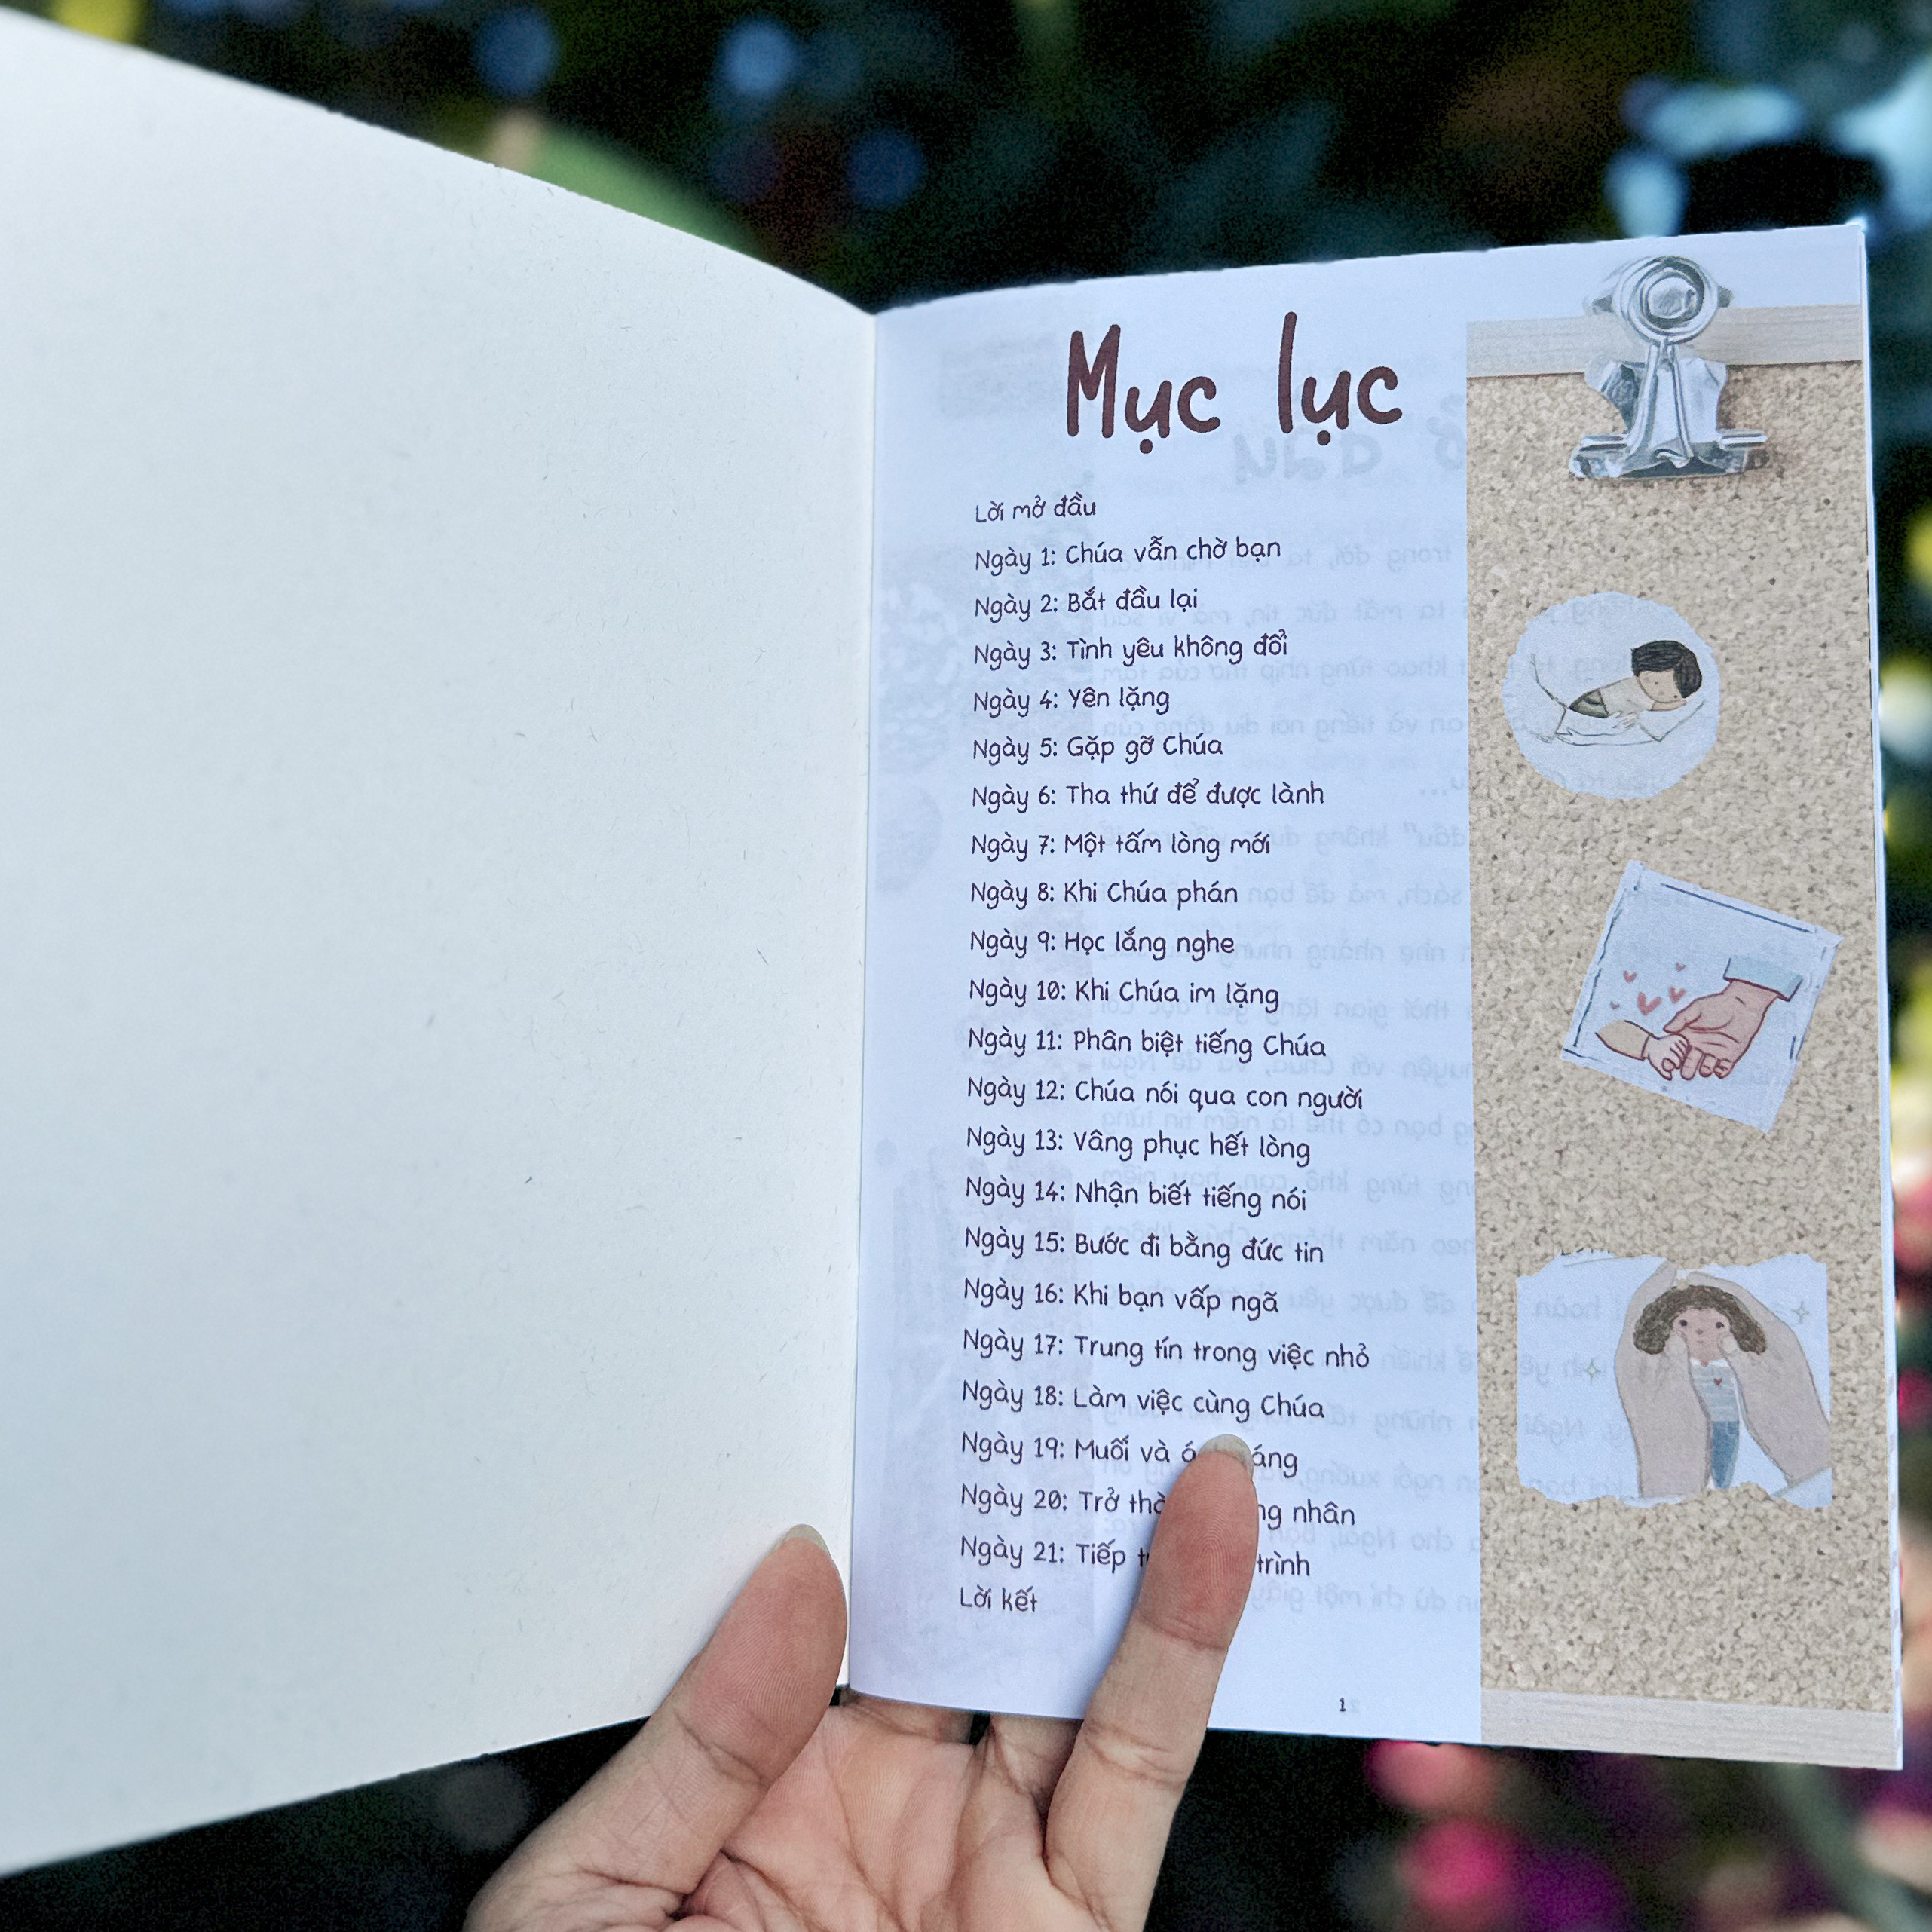 Mục lục
Lời mở đầu
Ngày 1: Chúa vẫn chờ bạn
Ngày 2: Bắt đầu lại
Ngày 3: Tình yêu không đổi
Ngày 4: Yên lặng
Ngày 5: Gặp gỡ Chúa
Ngày 6: Tha thứ để được lành
Ngày 7: Một tấm lòng mới
Ngày 8: Khi Chúa phán
Ngày 9: Học lắng nghe
Ngày 10: Khi Chúa im lặng
Ngày 11: Phân biệt tiếng Chúa
Ngày 12: Chúa nói qua con người
Ngày 13: Vâng phục hết lòng
Ngày 14: Nhận biết tiếng nói
Ngày 15: Bước đi bằng đức tin
Ngày 16: Khi bạn vấp ngã
Ngày 17: Trung tín trong việc nhỏ
Ngày 18: Làm việc cùng Chúa
Ngày 19: Muối và
Ngày 20: Trở nhân
Ngày 21: Tiếp trình
Lời kết
1